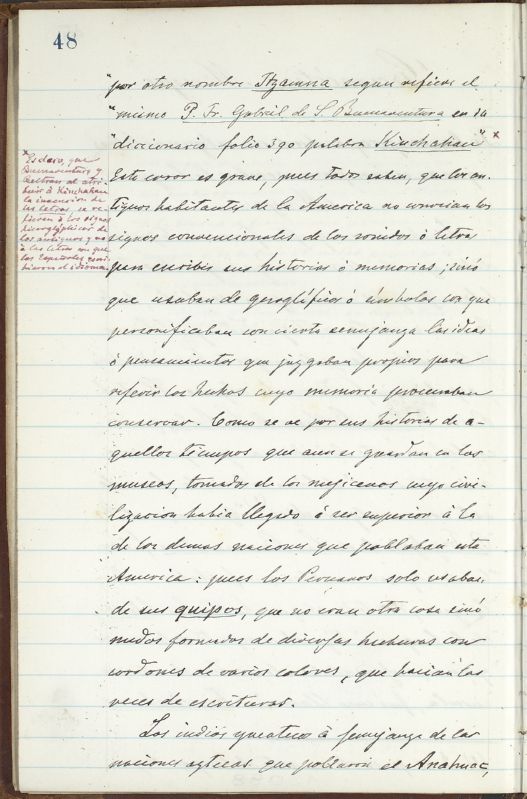 48
"por otro nombre Itzamna segun refiere el
"mismo P. Fr. Gabriel de S. Buenaventura en su
"diccionario folio 390 palabra Kinchahau" x
Este error es grave, pues todos saben, que los an-
tiguos habitantes de la America no conocian los
signos convencionales de los sonidos ó letras
para escribir sus historias ó memorias; sinó
que usaban de geroglíficos ó símbolos con que
personificaban con cierta semejanza las ideas
ó pensamientos que juzgaban propios para
referir los hechos cuya memoria procuraban
conservar. Como se ve por sus historias de a-
quellos tiempos que aun se guardan en los
museos, tomados de los mejicanos cuya civi-
lizacion habia llegado á ser superior á la
de las demas naciones que poblaban esta
America: pues los Peruanos solo usaban
de sus quipos, que no eran otra cosa sinó
nudos formados de diversas hechuras con
cordones de varios colores, que hacian las
veces de escrituras.
Los indios yucatecos á semejanza de las
naciones aztecas que poblaron el Anahuac,
x Es claro, que
Buenaventura y
Beltran al atri-
buir á Kinchahau
la invencion de
las letras se re-
firieron á los signos
geroglíficos de
los antiguos y no
á las letras con que
los Españoles escri-
bieron el idioma.